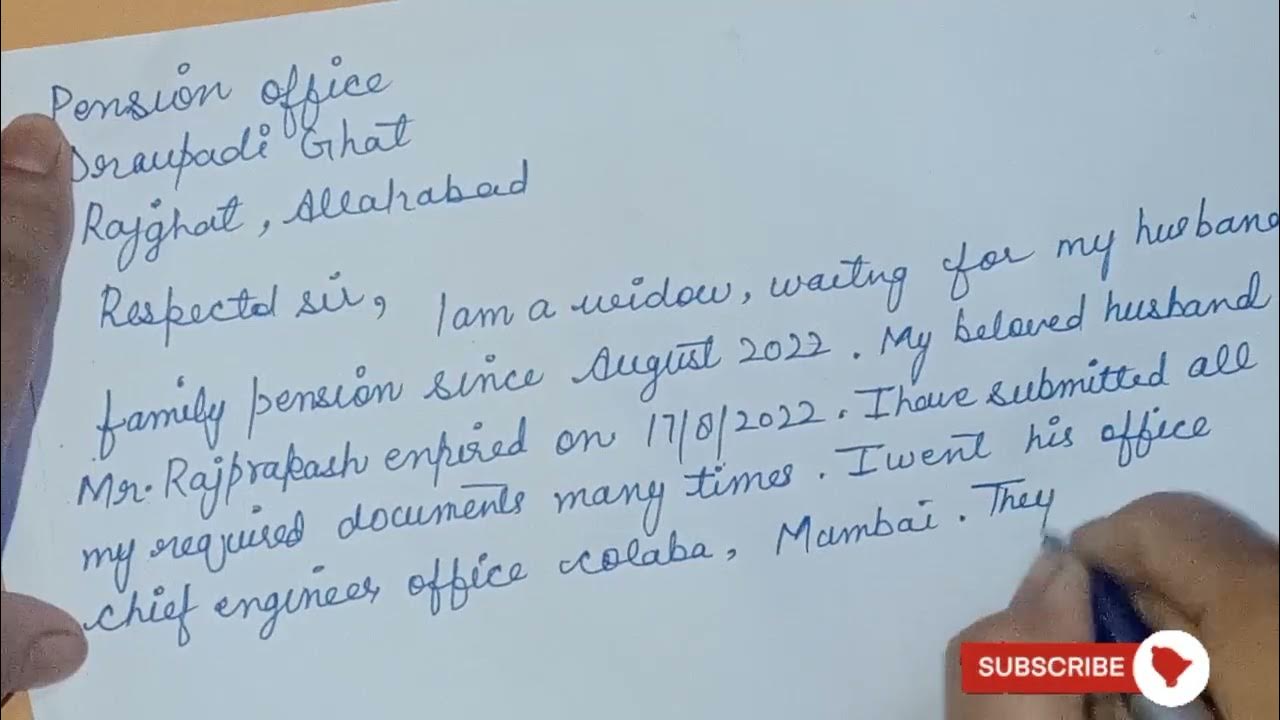 Pension office
Draupadi Ghat
Rajghat, Allahabad
Respectd sir, I am a widow, waitng for my husband
family pension since August 2022. My beloved husband
Mr. Rajprakash enpired on 17/8/2022. I have submitted all
my required documents many times. I went his office
chief engineer office colaba, Mambai. They
SUBSCRIBE